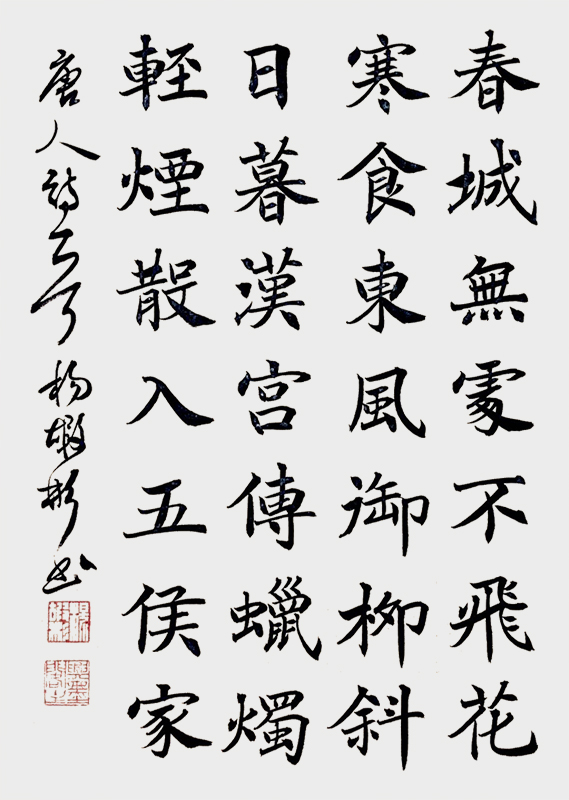 春城無處不飛花
寒食東風御柳斜
日暮漢宮傳蠟燭
輕煙散入五侯家
唐人詩 楊 彬书